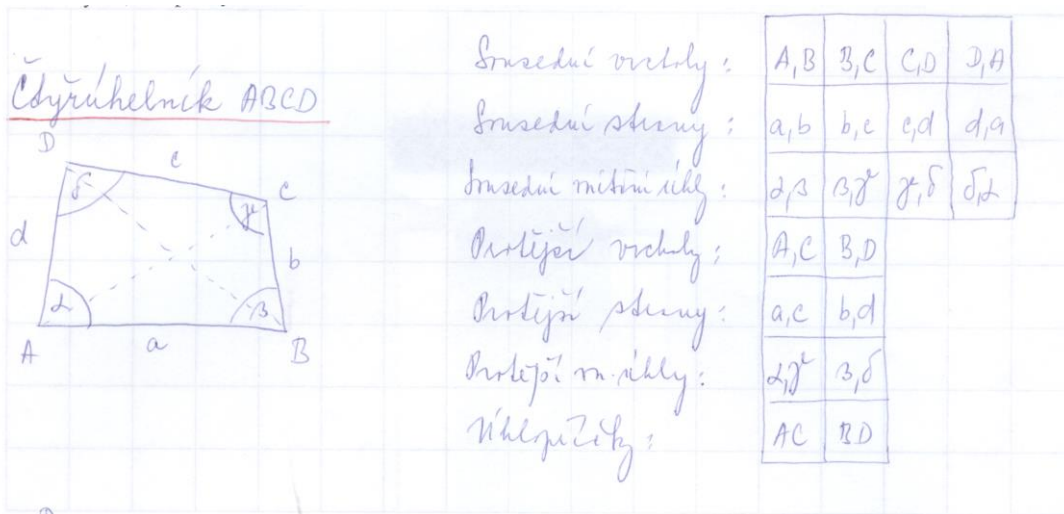 Čtyřúhelník ABCD
D
c
C
δ
γ
d
b
α
β
A
a
B
Sousední vrcholy: A,B B,C C,D D,A
Sousední strany: a,b b,c c,d d,a
Sousední vnitřní úhly: α,β β,γ γ,δ δ,α
Protější vrcholy: A,C B,D
Protější strany: a,c b,d
Protější vn. úhly: α,γ β,δ
Úhlopříčky: AC BD